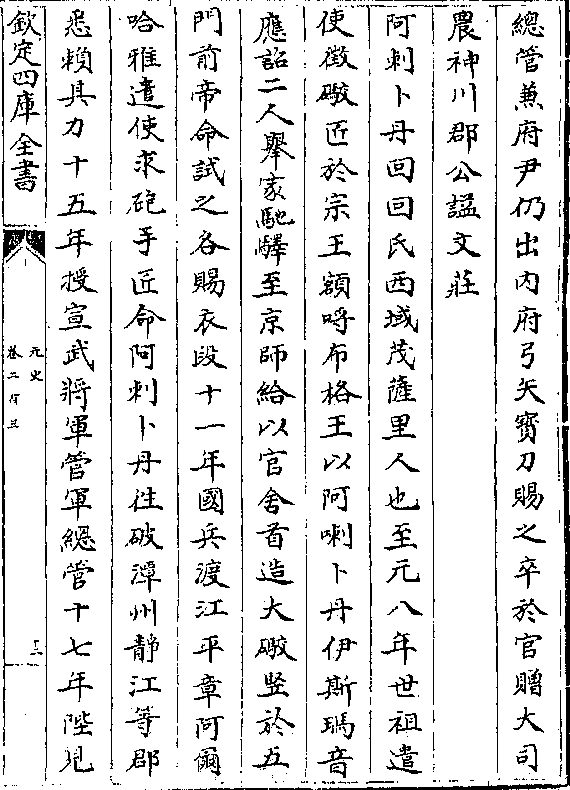 總管兼府尹仍出內府弓矢寳刀賜之卒於官贈大司
農神川郡公諡文莊
阿刺卜丹回回氏西域茂薩里人也至元八年世祖遣
使徵礮匠於宗王額哷布格王以阿喇卜丹伊斯瑪音
應詔二人舉家馳驛至京師給以官舍首造大礮竪於五
門前帝命試之各賜衣段十一年國兵渡江平章阿爾
哈雅遣使求砲手匠命阿刺卜丹往破潭州靜江等郡
悉賴其力十五年授宣武將軍管軍總管十七年陛見
欽定四庫全書
元史
卷二百三
十二